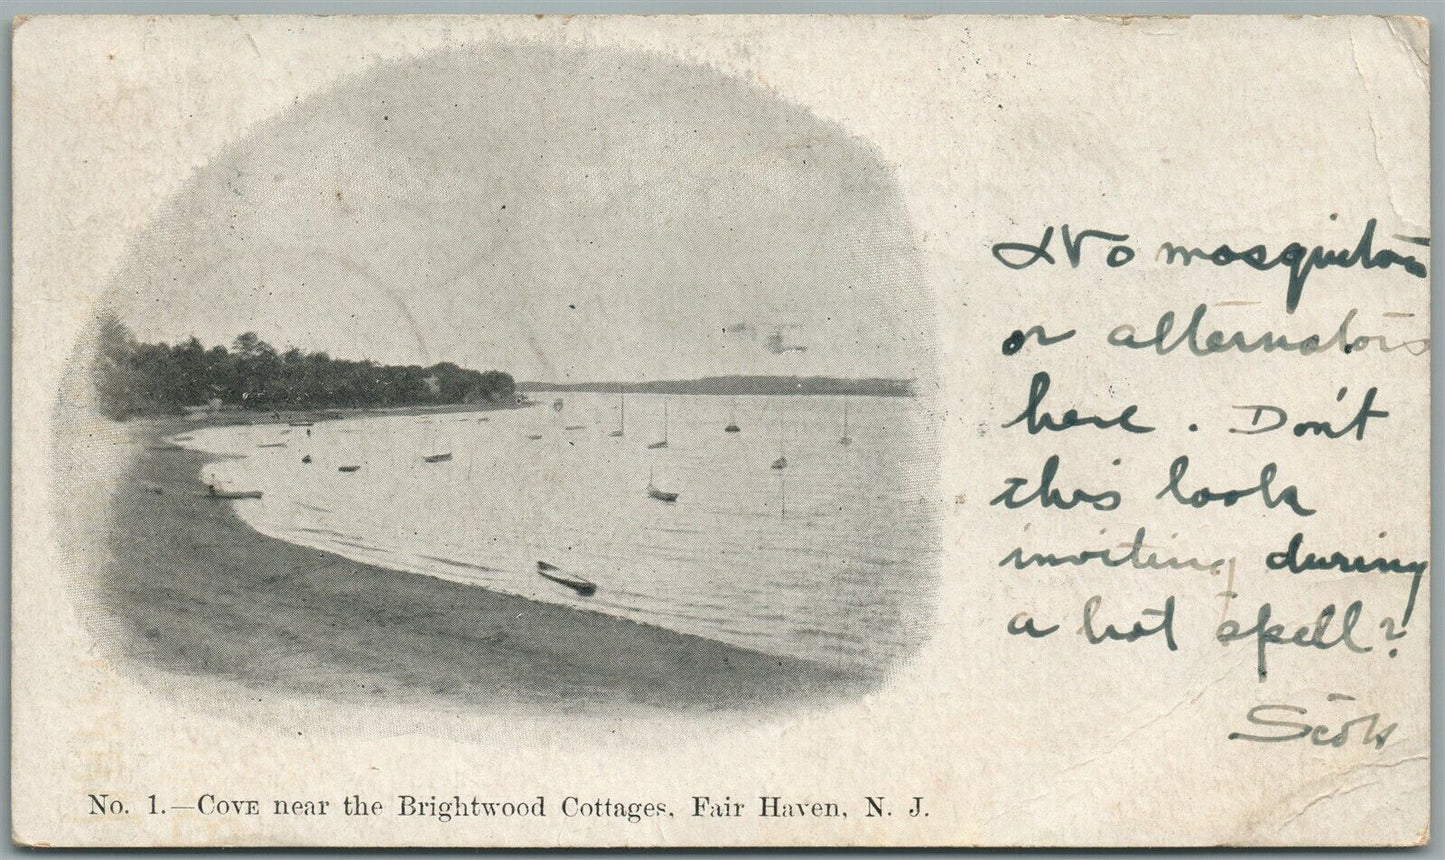 No mosquitoes
or alternators
here. Don't
this look
inviting during
a hot spell?
No. 1.—Cove near the Brightwood Cottages, Fair Haven, N. J.